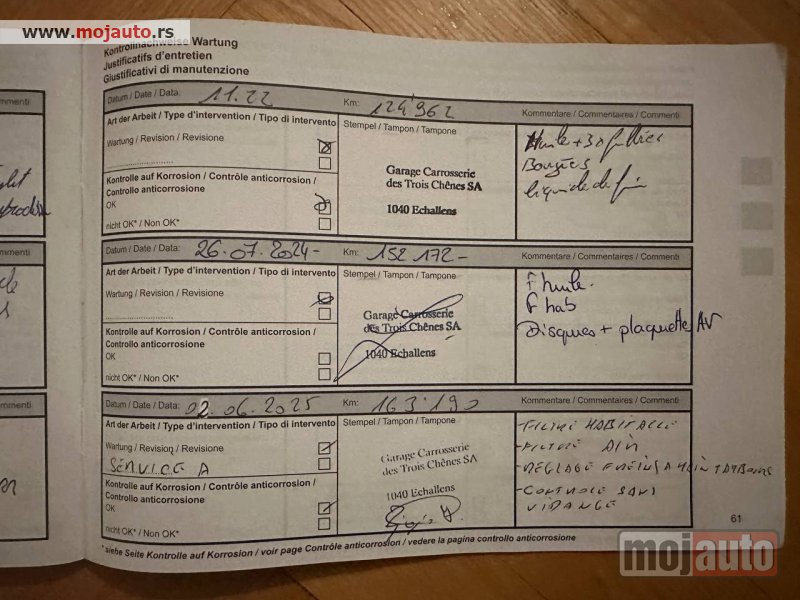 www.mojauto.rs
Kontrollnachweise Wartung
Justificatifs d'entretien
Giustificativi di manutenzione
Datum / Date / Data: 11.22 Km: 124'962 Kommentare / Commentaires / Commenti
Art der Arbeit / Type d'intervention / Tipo di intervento Stempel / Tampon / Tampone
Wartung / Revision / Revisione
Huile + 3 filtres
Bougies
liquide de frein
Garage Carrosserie
des Trois Chênes SA
1040 Echallens
Kontrolle auf Korrosion / Contrôle anticorrosion /
Controllo anticorrosione
OK
nicht OK* / Non OK*
Datum / Date / Data: 26.07.2024- Km: 152 172- Kommentare / Commentaires / Commenti
Art der Arbeit / Type d'intervention / Tipo di intervento Stempel / Tampon / Tampone
Wartung / Revision / Revisione
F huile.
F hab
Disques + plaquettes AV
Garage Carrosserie
des Trois Chênes SA
1040 Echallens
Kontrolle auf Korrosion / Contrôle anticorrosion /
Controllo anticorrosione
OK
nicht OK* / Non OK*
Datum / Date / Data: 02.06.2025 Km: 163'190 Kommentare / Commentaires / Commenti
Art der Arbeit / Type d'intervention / Tipo di intervento Stempel / Tampon / Tampone
Wartung / Revision / Revisione
SERVICE A
- FILTRE HABITACLE
- FILTRE AIR
- REGLAGE FREINS A MAIN TAMBOURS
- CONTROLE SANS
VIDANGE
Garage Carrosserie
des Trois Chênes SA
1040 Echallens
Kontrolle auf Korrosion / Contrôle anticorrosion /
Controllo anticorrosione
OK
nicht OK* / Non OK*
* siehe Seite Kontrolle auf Korrosion / voir page Contrôle anticorrosion / vedere la pagina controllo anticorrosione
61
mojauto